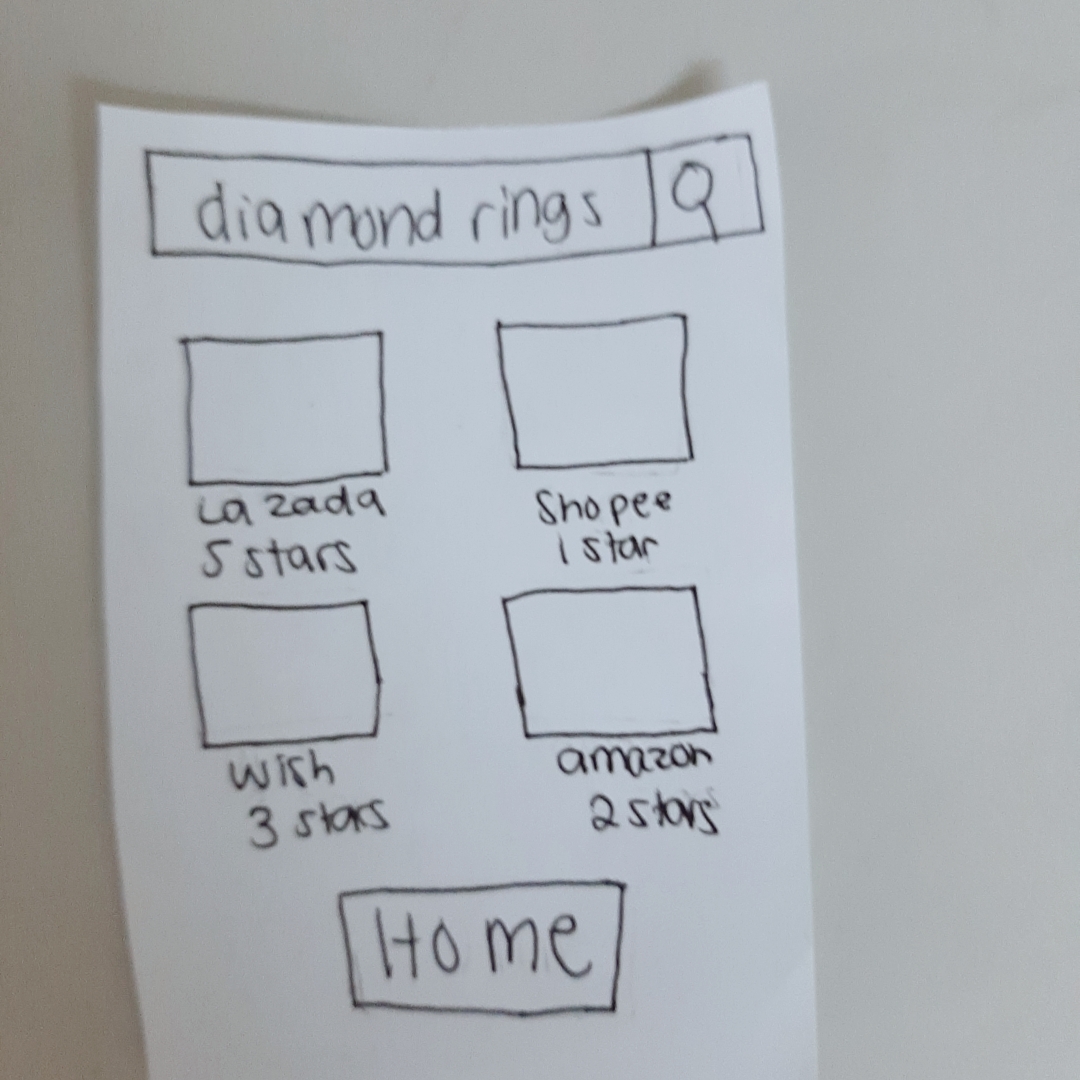 diamond rings
Lazada
5 stars
Shopee
1 star
wish
3 stars
amazon
2 stars
Home